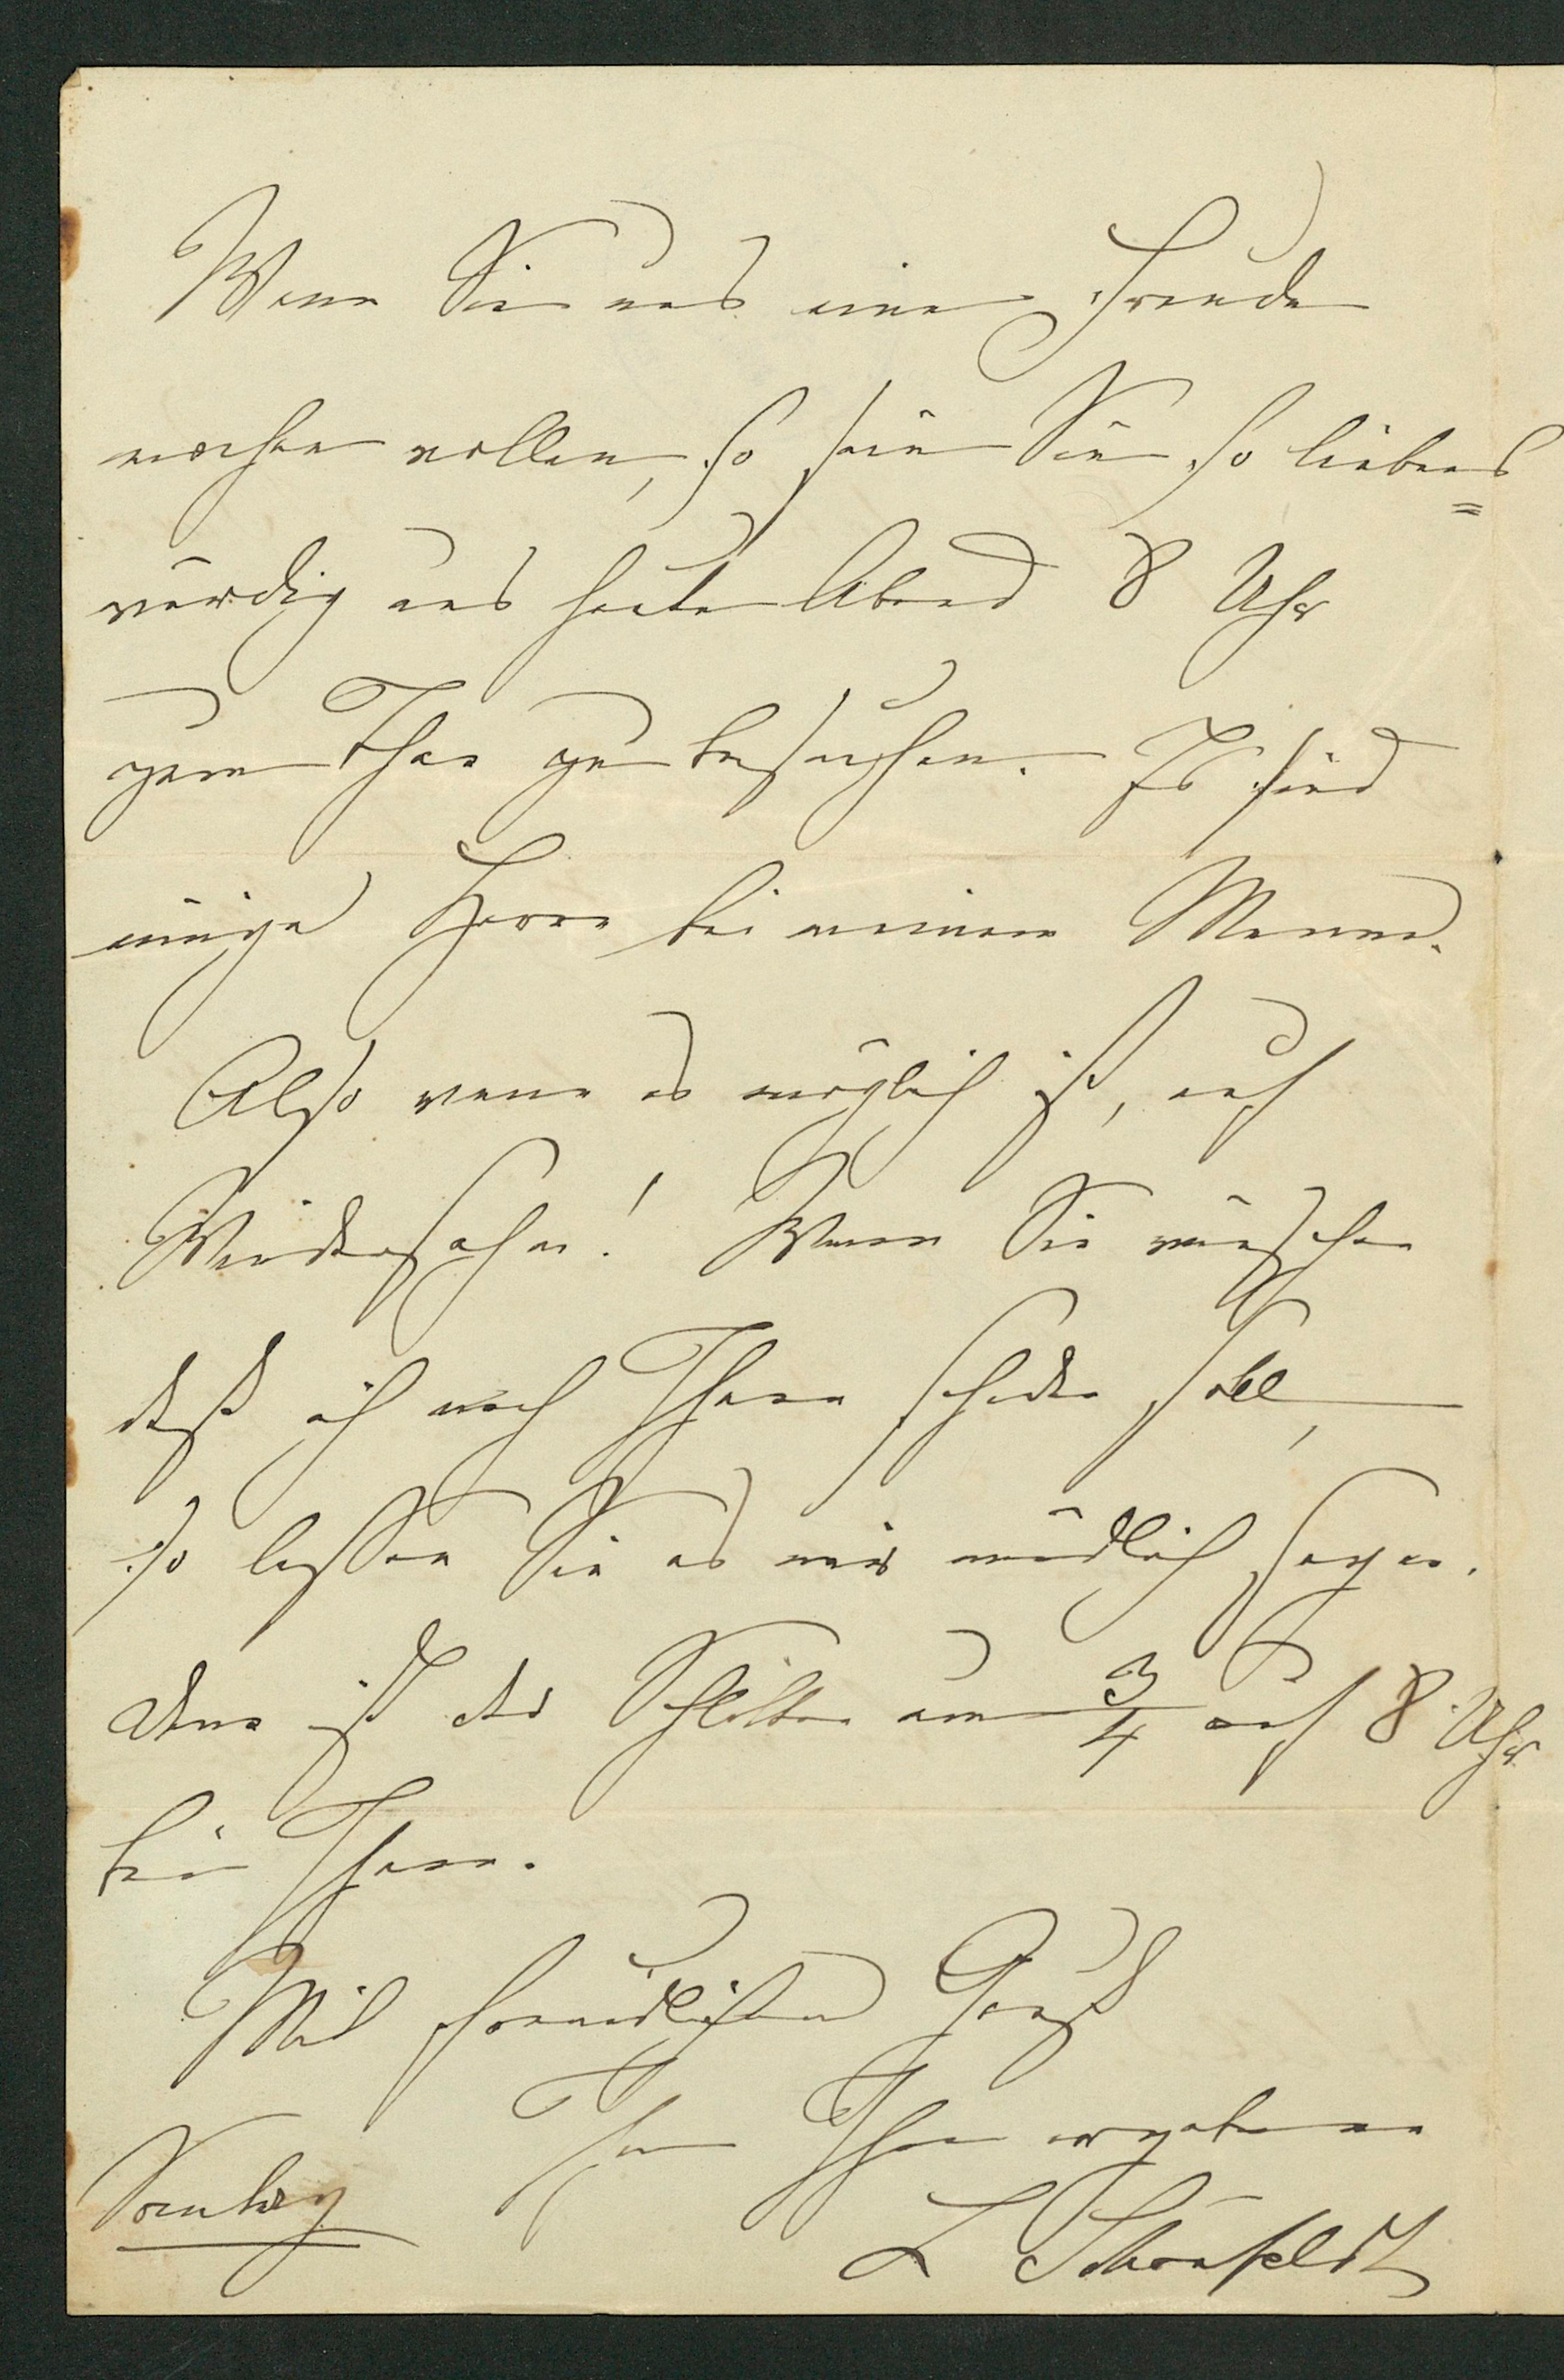 Wenn Sie uns eine Freude
machen wollen, so sein Sie so liebens=
würdig uns heute Abend 8 Uhr
zum Thee zu besuchen. Es sind
einige Herrn bei meinem Manne.
Also wenn es möglich ist, auf
Wiedersehn! Wenn Sie wünschen
daß ich nach Ihnen schicken soll,
so lassen Sie es mir mündlich sagen.
dann ist der Schlitten um 3/4 auf 8 Uhr
bei Ihnen.
Mit freundlichem Gruß
Ihre Ihnen ergebene
Sonntag
L Schönfeldt